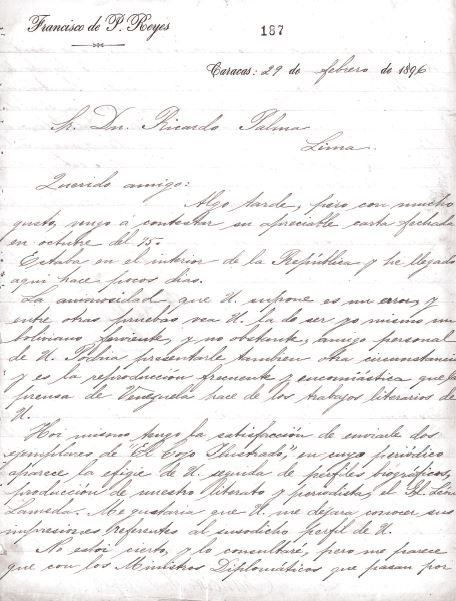 Francisco de P. Reyes
187
Caracas: 29 de febrero de 1896
Sr. Dn. Ricardo Palma
Lima.
Querido amigo:
Algo tarde, pero con mucho
gusto, vengo a contestar su apreciable carta fechada
en octubre del 95.
Estaba en el interior de la República y he llegado
aquí hace pocos dias.
La animosidad que U. supone es un error, y
entre otras pruebas vea U. la de ser yo mismo un
boliviano ferviente, y no obstante, amigo personal
de U. Podria presentarle tambien otra circunstancia
y es la reproducción frecuente y encomiástica que la
prensa de Venezuela hace de los trabajos literarios de
U.
Hoi mismo tengo la satisfacción de enviarle dos
ejemplares de "El Cojo Ilustrado", en cuyo periódico
aparece la efigie de U. seguida de perfiles biográficos,
producción de nuestro literato y periodista, el Sr. León
Lameda. Me gustaria que U. me dejara conocer sus
impresiones referentes al susodicho perfil de U.
No estoi cierto, y lo consultaré, pero me parece
que con los Ministros Diplomáticos que pasan por